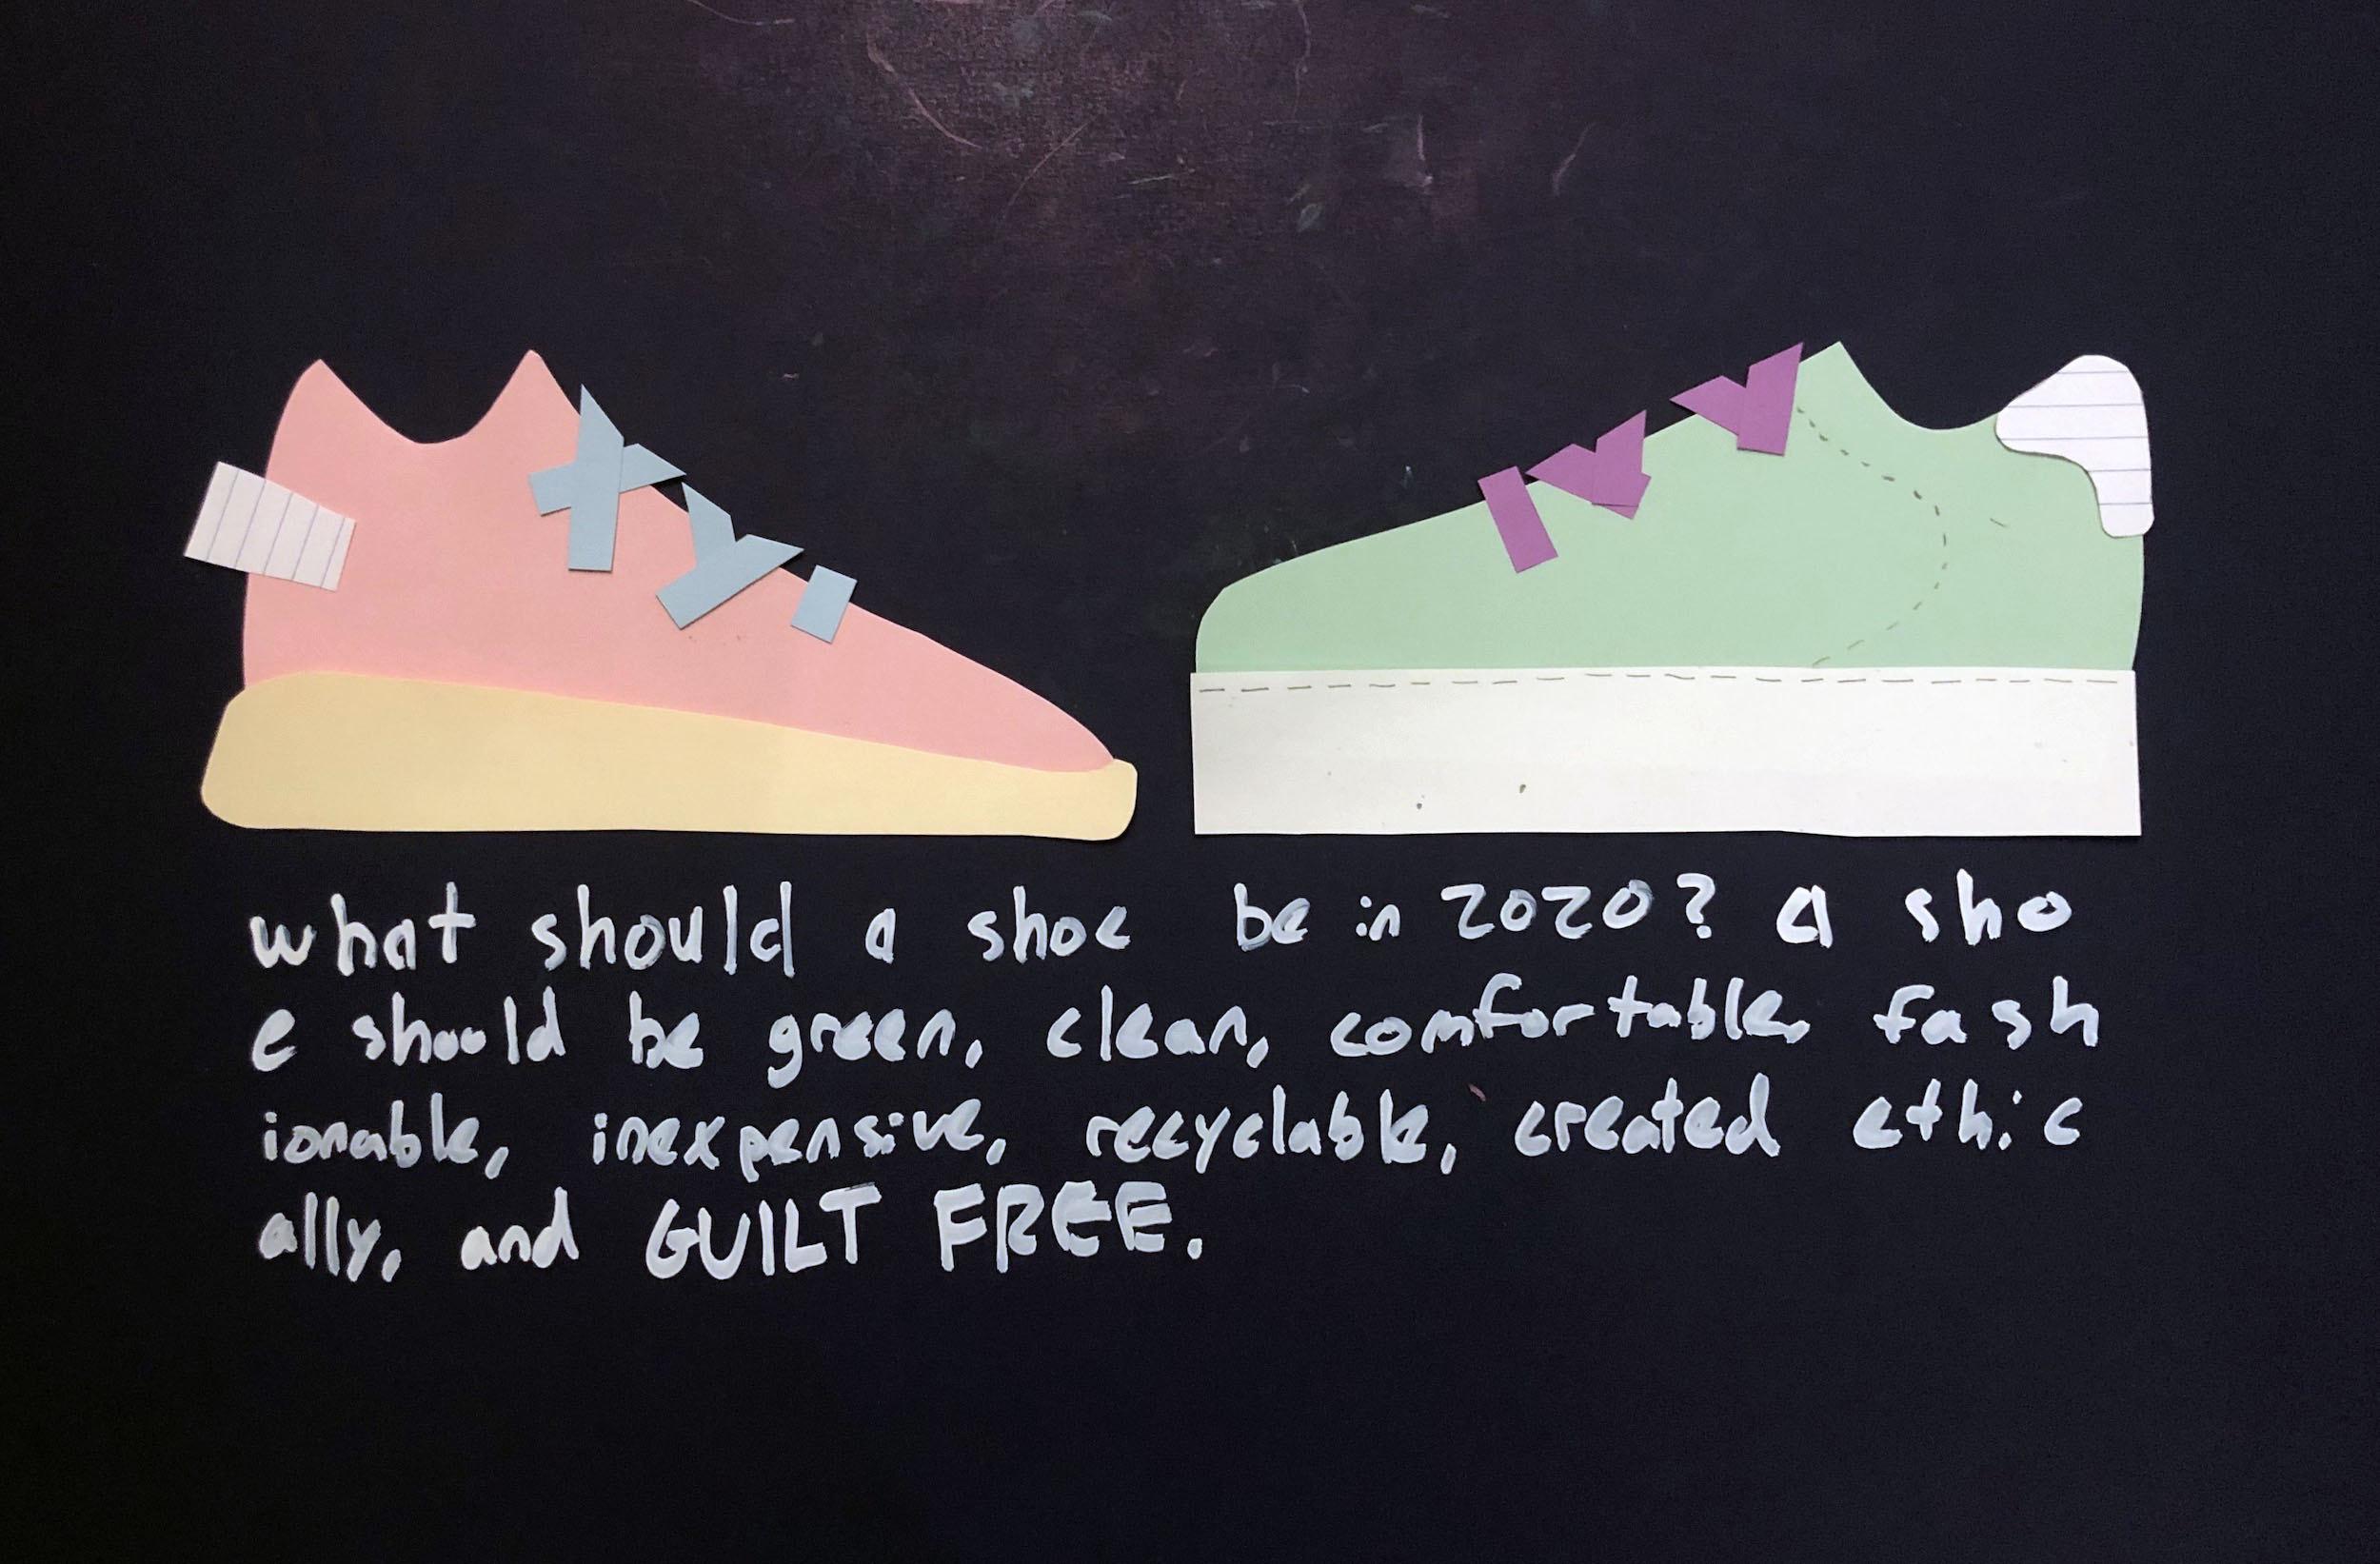 what should a shoe be in 2020? a sho
e should be green, clean, comfortable, fash
ionable, inexpensive, recyclable, created ethic
ally, and GUILT FREE.